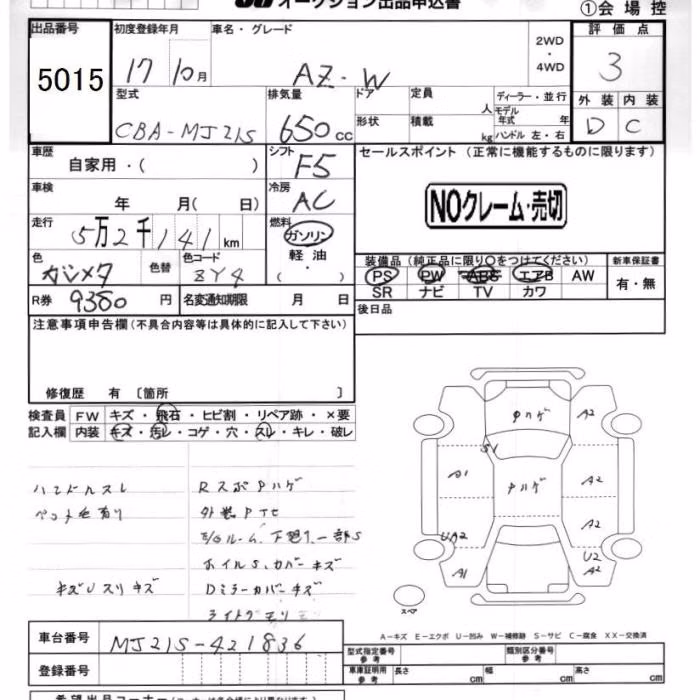 JU オークション出品申込書
①会場控
出品番号 初度登録年月 車名・グレード 2WD・4WD 評価点
5015 17 10月 AZ-W 3
型式 排気量 ドア 定員 人 ディーラー・並行 外装 内装
CBA-MJ21S 650cc 形状 積載 kg モデル年式 年式 ハンドル 左・右 D C
車歴 シフト セールスポイント (正常に機能するものに限ります)
自家用・( ) F5
車検 冷房
年 月( 日) AC NOクレーム・売切
走行 燃料
5万2千141km ガソリン
色 色替 色コード 軽油 装備品(純正品に限り〇をつけてください) 新車保証書
ガンメタ ZY4 ・( ) PS PW ABS エアB AW 有・無
SR ナビ TV カワ
R券 9380円 名変通知期限 月 日 後日品
注意事項申告欄(不具合内容等は具体的に記入して下さい)
修復歴 有 〔箇所 〕
検査員 FW キズ・飛石・ヒビ割・リペア跡・×要
記入欄 内装 キズ・汚レ・コゲ・穴・スレ・キレ・破レ
ハンドルスレ RスポPハゲ
ペット毛有り
ホイルS、カバーキズ
キズUスリキズ Dミラーカバーキズ
PハゲA2
SV
A1 PハゲA2
A2
UA2 U2
A1 A2
スペア
A-キズ E-エクボ U-凹み W-補修跡 S-サビ C-腐食 XX-交換済
車台番号 MJ21S-421836
登録番号
型式指定番号 参考 類別区分番号 参考
車庫証明用 参考 長さ cm 幅 cm 高さ cm